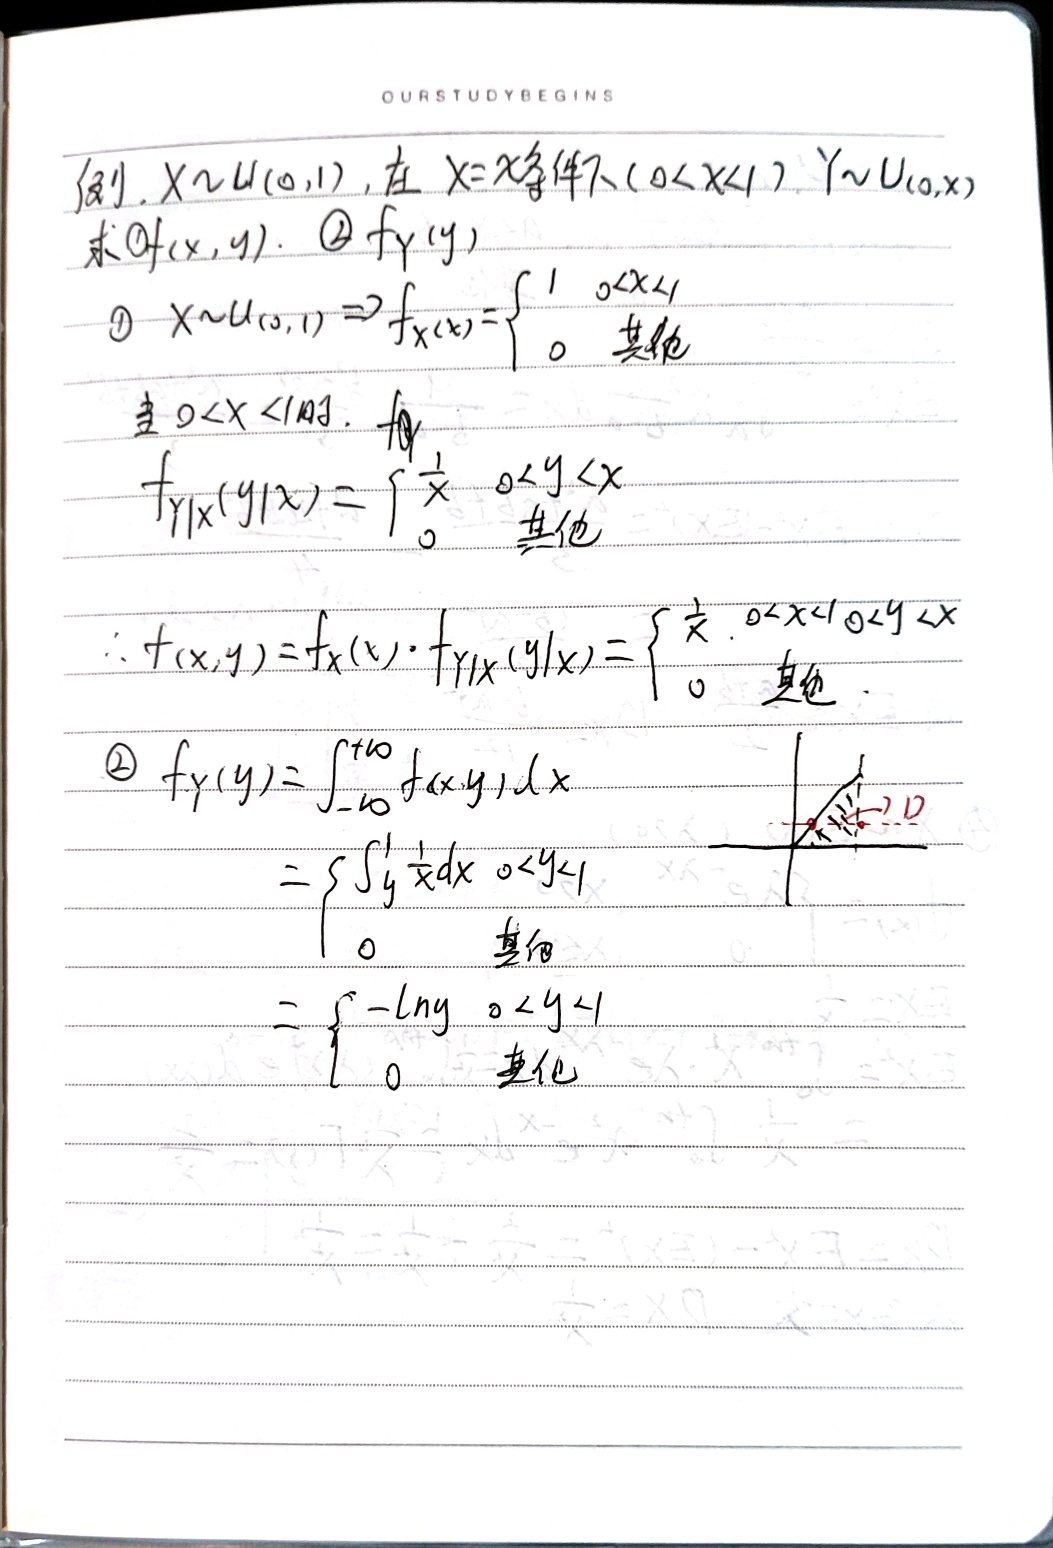 OURSTUDYBEGINS
例. X~U(0,1), 在 X=x条件下(0<x<1) Y~U(0,x)
求①f(x,y). ② fY(y)
① X~U(0,1) ⇒ fX(x)={ 1 0<x<1
0 其他
当 0<x<1时.
fY|X(y|x) = { 1/x 0<y<x
0 其他
∴ f(x,y) = fX(x)·fY|X(y|x) = { 1/x. 0<x<1 0<y<x
0 其他.
② fY(y) = ∫_{-∞}^{+∞} f(x,y)dx
→ D
= { ∫_y^1 1/x dx 0<y<1
0 其他
= { -lny 0<y<1
0 其他